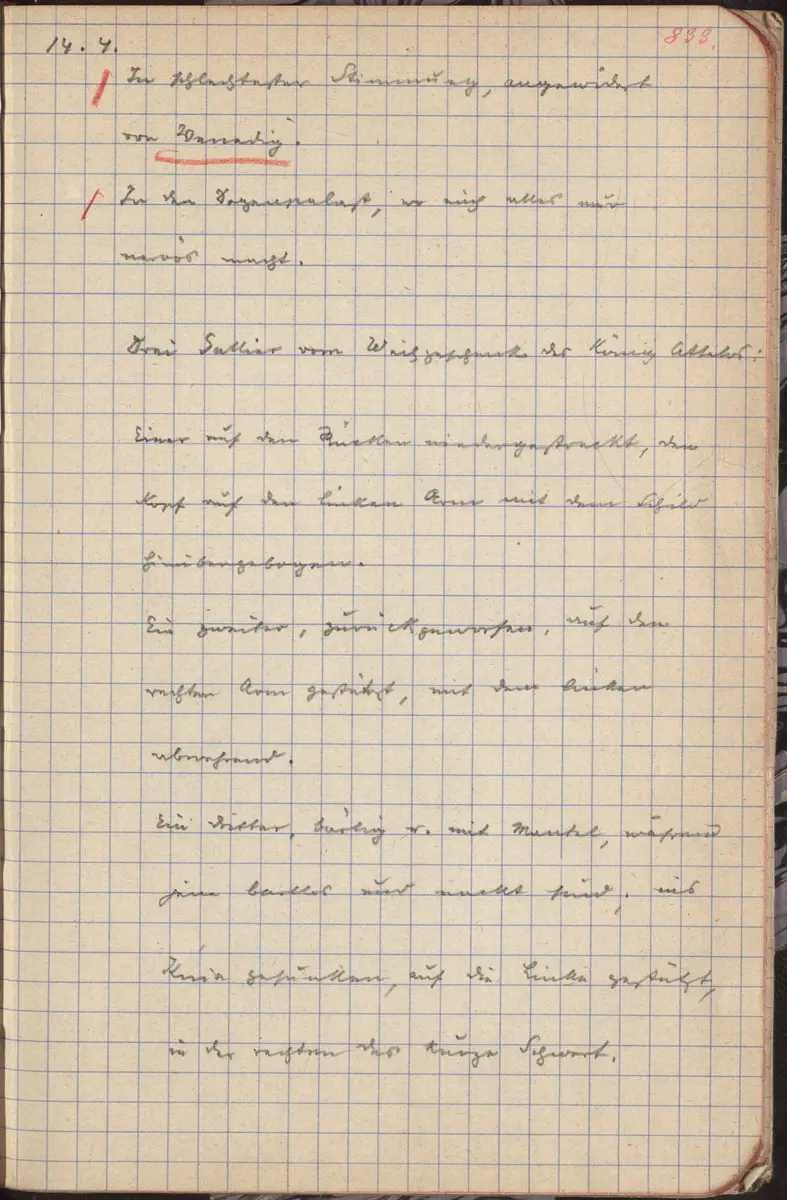 833.
14. 4.
In schlechtester Stimmung, angewidert
von Venedig.
In den Dogenpalast, wo mich alles nur
nervös macht.
Drei Gallier vom Weihgeschenk des König Attalos:
Einer auf den Rücken niedergestreckt, den
Kopf auf den linken Arm mit dem Schild
hinübergebogen.
Ein zweiter, zurückgeworfen, auf den
rechten Arm gestützt, mit dem linken
abwehrend.
Ein dritter, bärtig u. mit Mantel, während
jene bartlos und nackt sind, ins
Knie gesunken, auf die Linke gestützt,
in der rechten das kurze Schwert.